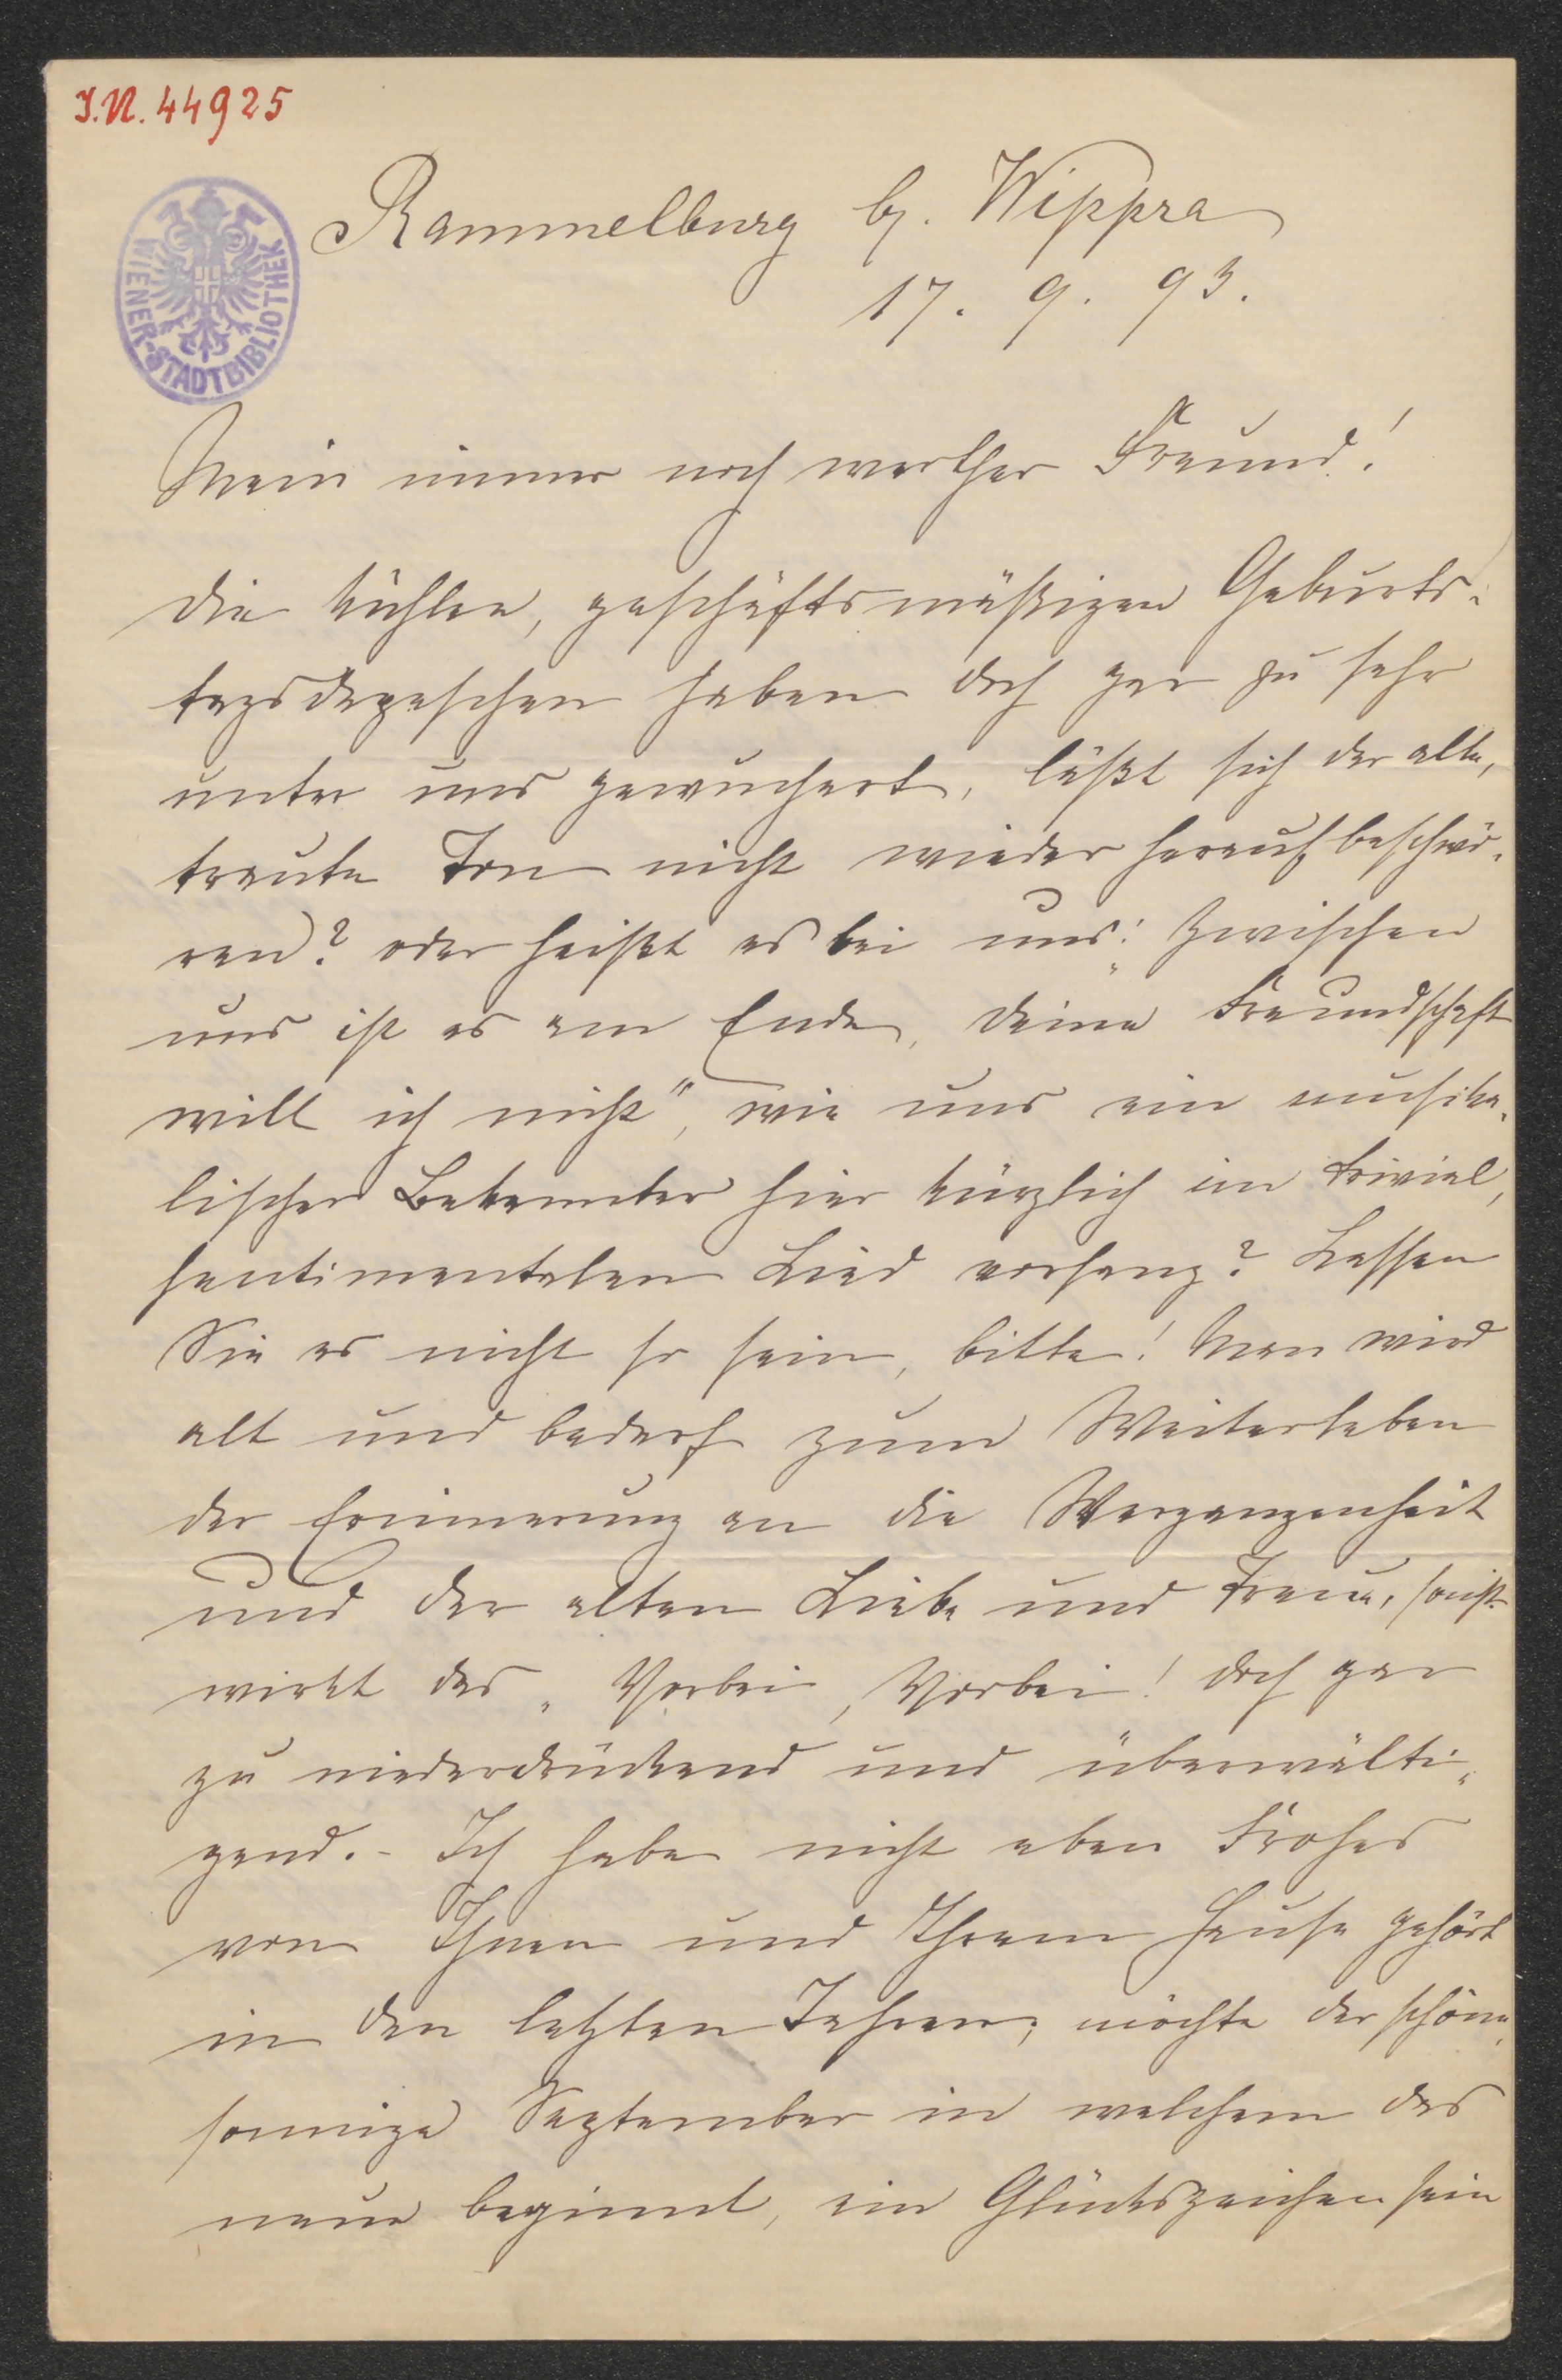 I.N. 44925
WIENER-STADTBIBLIOTHEK
Rammelburg b. Wippra
17. 9. 93.
Mein immer noch werther Freund!
die kühlen, geschäftsmäßigen Geburts-
tagsdepeschen haben doch gar zu sehr
unter uns gewuchert, läßt sich der alte,
traute Ton nicht wieder heraufbeschwö-
ren? oder heißt es bei uns: „Zwischen
uns ist es am Ende, deine Freundschaft
will ich nicht", wie uns ein musika-
lischer Bekannter hier kürzlich im trivial,
sentimentalen Lied vorsang? Lassen
Sie es nicht so sein, bitte! Man wird
alt und bedarf zum Weiterleben
der Erinnerung an die Vergangenheit
und der alten Liebe und Treue, sonst
wirkt das „Vorbei, Vorbei! doch gar
zu niederdrückend und überwälti-
gend. - Ich habe nicht eben Frohes
von Ihnen und Ihrem Hause gehört
in den letzten Jahren; möchte der schöne,
sonnige September in welchem das
neue beginnt, ein Glückszeichen sein